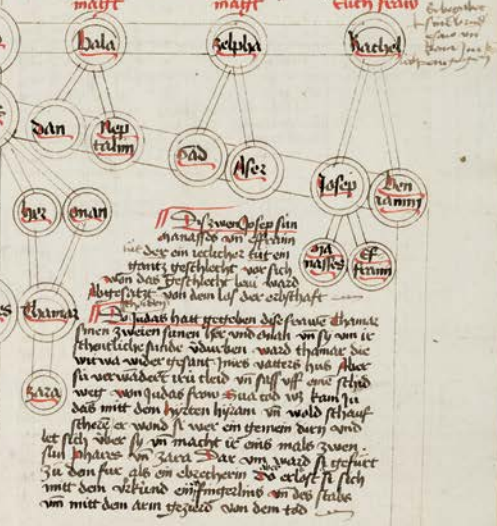 magt
magt
Elich fraw
bala
zelpha
Rachel
dan
Nep
talim
Gad
Aser
Josep
Ben
iamin
her
onan
Ma
nasses
Ef
fraim
Thamar
zara
Dis zwen Josep sun
manasses vn effraim
der ein ieclicher tut ein
gantz geschlecht vor sich
won das geschlecht leui ward
Abgesatzt von dem los der erbschaft
Do Judas hatt gegeben dise frawe Thamar
sinen zweien sunen Her vnd onan vn sy vm ir
schentliche sunde vdurben ward thamar die
witwa wider gesant Inres vatters hus Aber
sie verwandert iru cleid vn sass vff eine schid
weg won Judas frow Sua tod wz kam Ju
das mitt dem hyrten hiram vn wold schauf
scheren er wond sy wer ein gemein dirn vnd
let sich vber sy vn macht ir eins mals zwen
sun phares vn zara Dar vm ward si gefurt
zu dem fur als ein ebrecherin Do erlost si sich
mitt dem vrkund eins fingerlins vn des stabs
vn mitt dem arm gezierd von dem tod